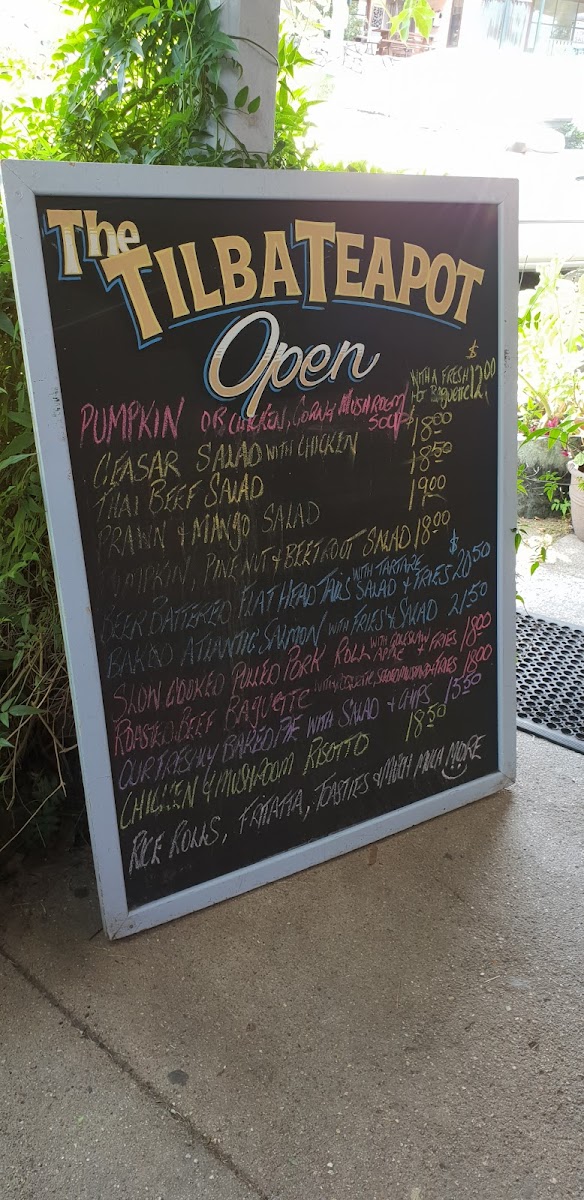 The TILBA TEAPOT
Open
PUMPKIN OR CHICKEN, CORN & MUSHROOM SOUP WITH A FRESH HOT BAGUETTE $12.00
CEASAR SALAD WITH CHICKEN $18.00
THAI BEEF SALAD 18.50
PRAWN & MANGO SALAD 19.00
PUMPKIN, PINENUT & BEETROOT SALAD 18.00
BEER BATTERED FLATHEAD TAILS WITH TARTARE SALAD & FRIES $20.50
BAKED ATLANTIC SALMON WITH FRIES & SALAD 21.50
SLOW COOKED PULLED PORK ROLL WITH COLESLAW & FRIES 18.00
ROASTED BEEF BAGUETTE & FRIES 18.00
OUR FRESHLY BAKED PIE WITH SALAD & CHIPS 15.50
CHICKEN & MUSHROOM RISOTTO 18.50
RICE ROLLS, FRITATTA, TOASTIES & MUCH MUCH MORE